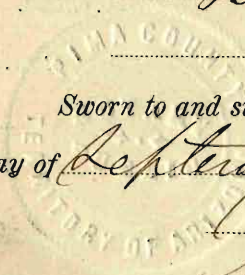 PIMA COUNTY
Sworn to and su
ay of Septem
TERRITORY OF ARIZO